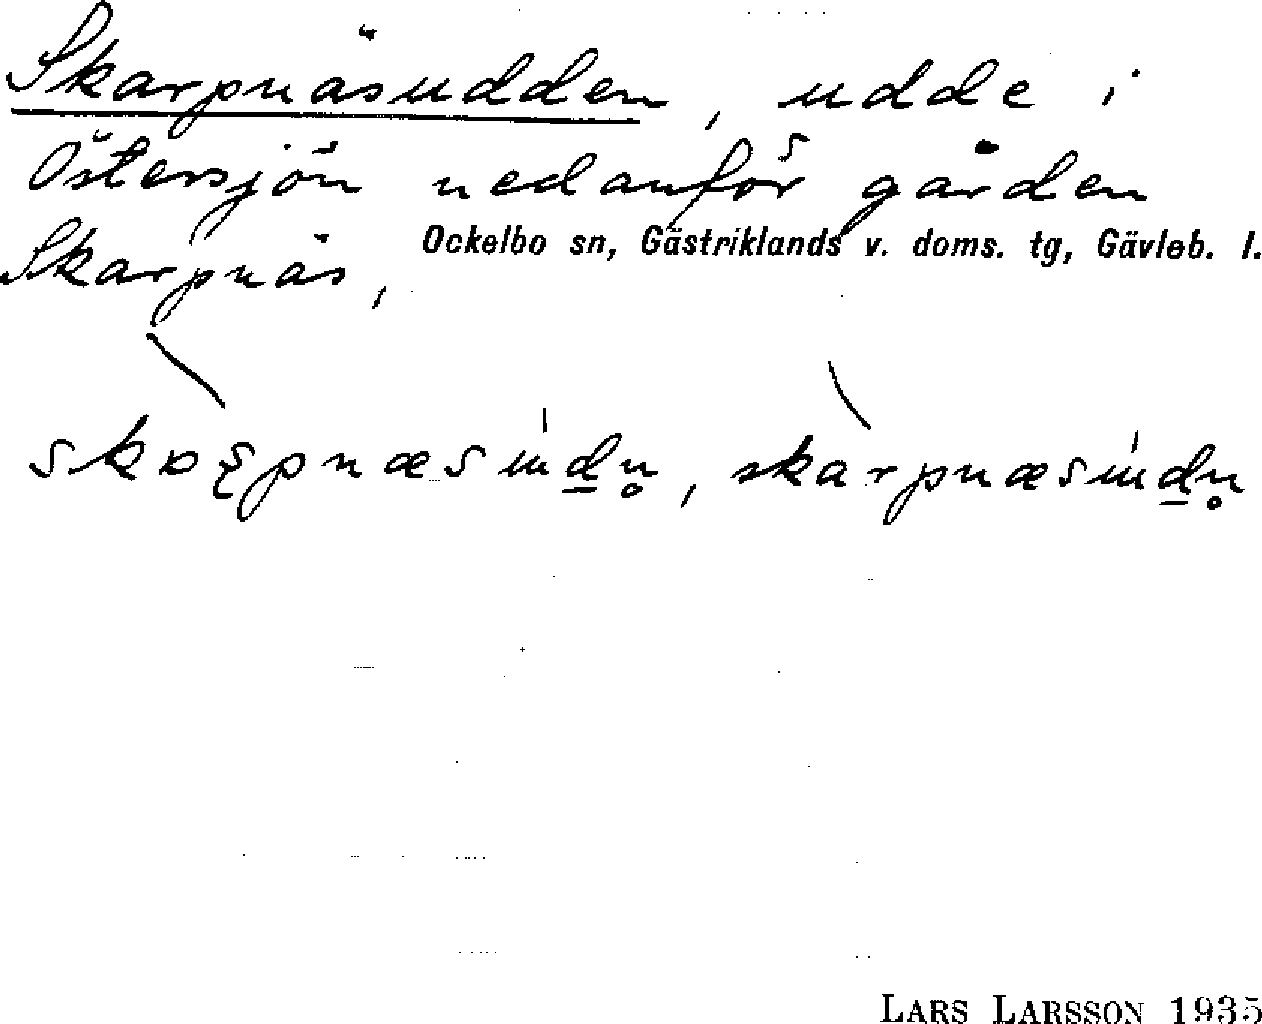 Skarpnäsudden, udde i
Östersjön nedanför gården
Skarpnäs, Ockelbo sn, Gästriklands v. doms. tg, Gävleb. l.
LARS LARSSON 1935